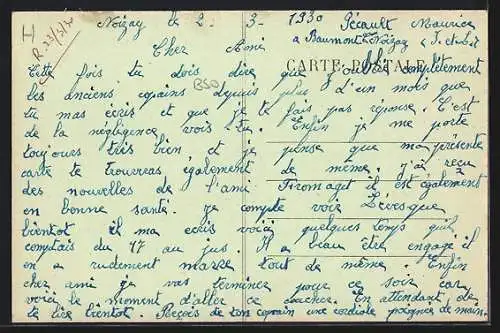 H
R. 23/3/30
Noizay le 2 - 3 - 1930 Pécault Maurice
à Beaumont Noizay I. et L.
Cher Ami
CARTE POSTALE
Cette fois tu dois dire que j'oublie complètement
les anciens copains depuis plus d'un mois que
B50
tu m'as écris et que je te fais pas réponse. C'est
de la négligence vois-tu. Enfin je me porte
toujours très bien et je pense que ma présente
carte te trouveras également de même. j'ai reçu
des nouvelles de l'ami Fromaget il est également
en bonne santé. je compte voir
bientôt il m'a écris voici quelques temps qu'il
comptais du 17 au jus Il a beau être engagé il
en a rudement marre tout de même. Enfin
cher ami je vas terminer pour ce soir car
voici le moment d'aller se coucher. En attendant de
te lire bientôt. Reçois de ton copain une cordiale poignée de main.